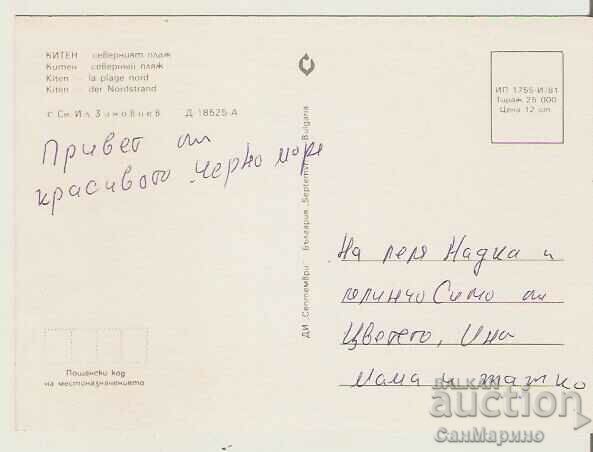 КИТЕН — северният плаж
Китен — северный пляж
Kiten — la plage nord
Kiten — der Nordstrand
с Сн. Ил. Зиновиев Д-18525-А
Привет от
красивото Черно море
ДИ „Септември“ България „Septemvri“ Bulgaria
ИП 1755-И/81
Тираж 25 000
Цена 12 ст.
На леля Надка и
Симо от
Цветето, Ина
мама и татко
Пощенски код
на местоназначението
BALKAN
auction
СанМарино